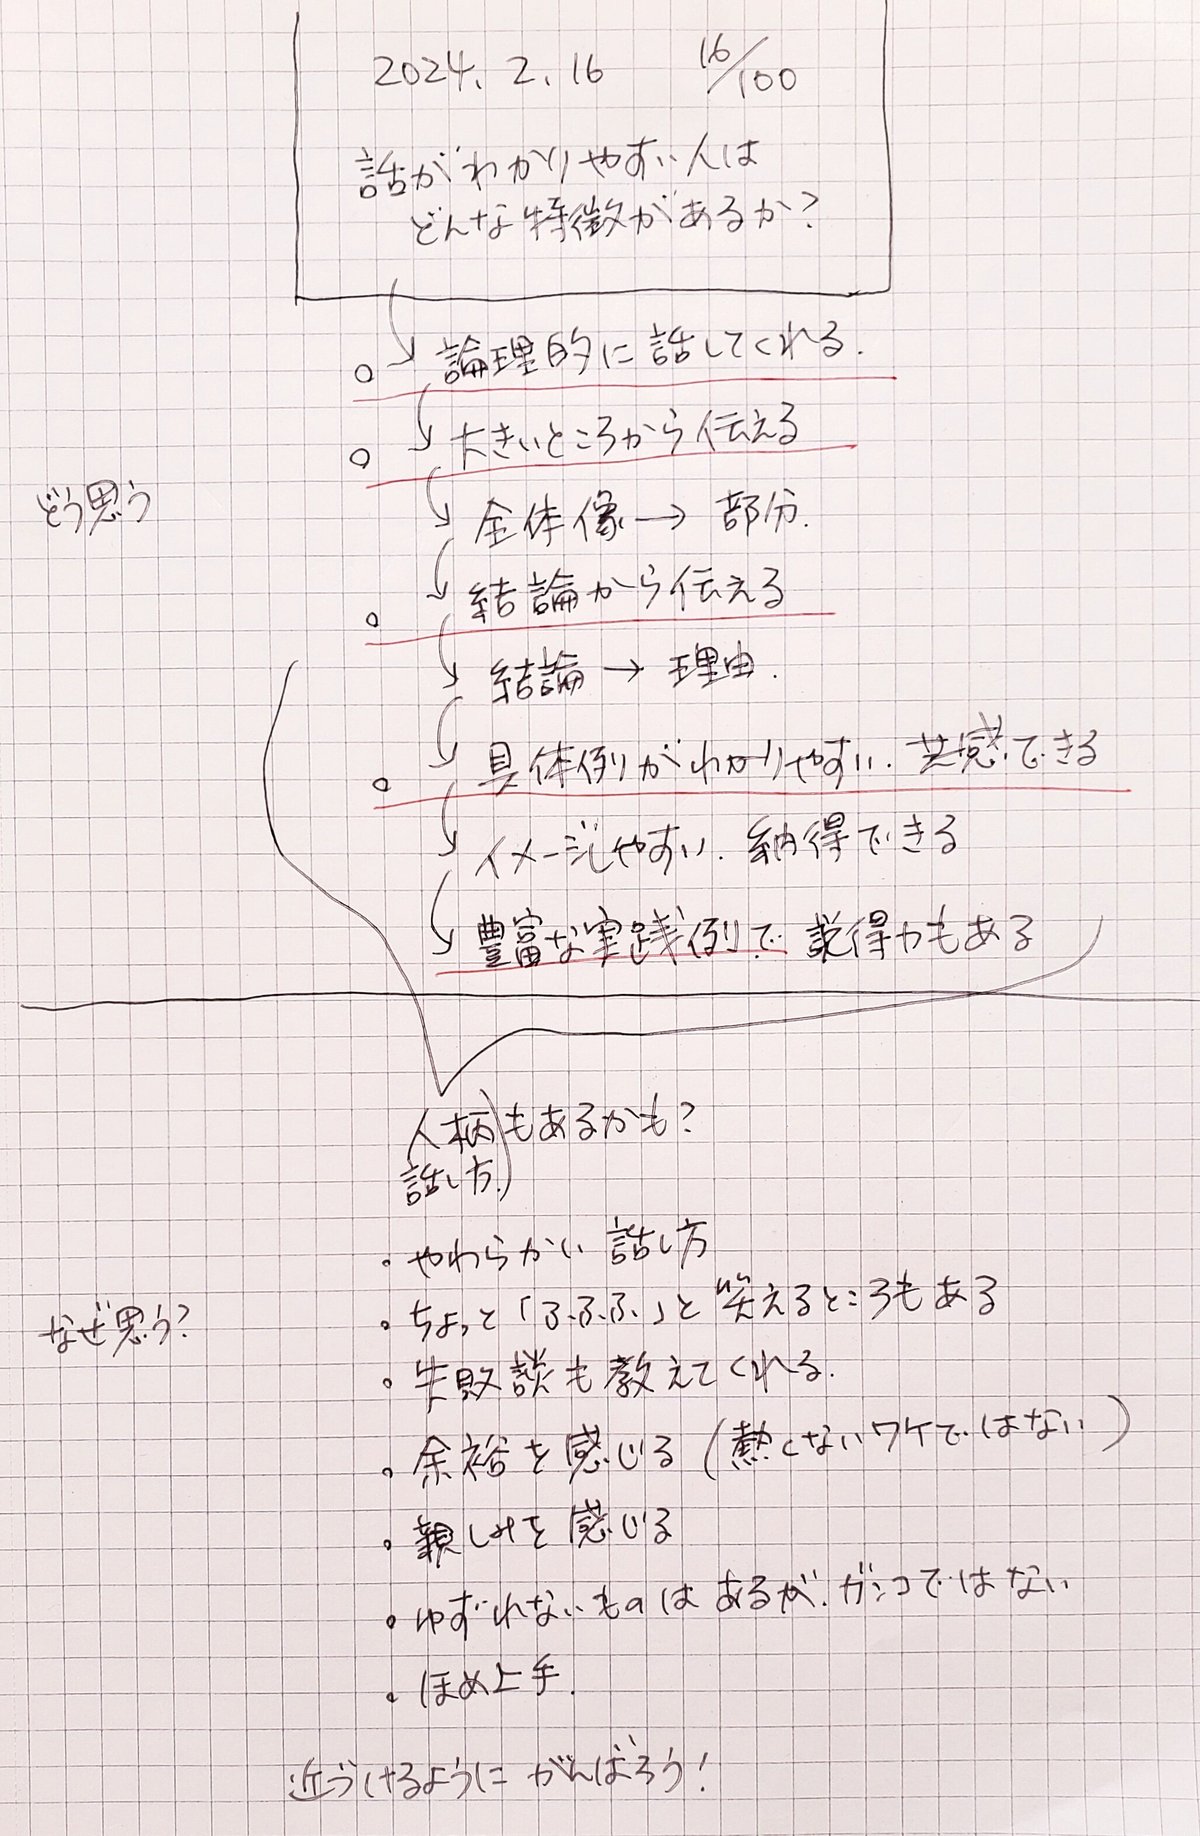 2024.2.16 16/100
話がわかりやすい人は
どんな特徴があるか?
論理的に話してくれる.
大きいところから伝える
どう思う
全体像→部分.
結論から伝える
結論→理由.
具体例がわかりやすい.共感できる
イメージしやすい.納得できる
豊富な実践例で説得力もある
人柄もあるかも?
話し方.
・やわらかい話し方
・ちょっと「ふふふ」と笑えるところもある
なぜ思う?
・失敗談も教えてくれる.
・余裕を感じる(熱くないワケではない)
・親しみを感じる
・ゆずれないものはあるが.ガンコではない
・ほめ上手.
近づけるようにがんばろう!